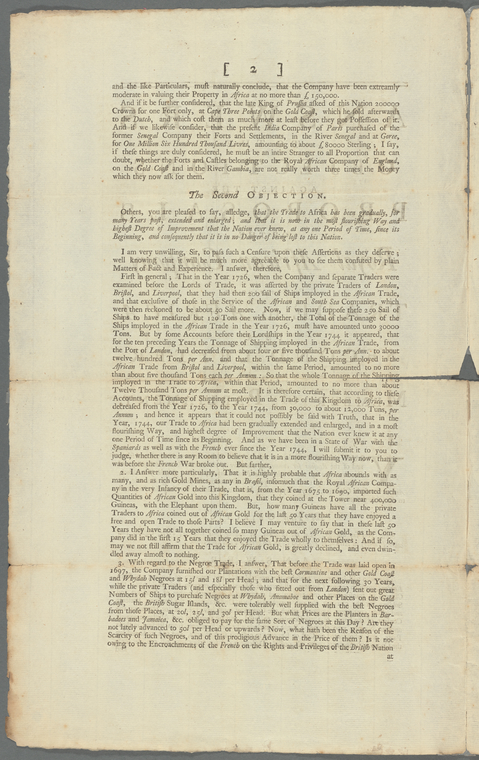 [ 2 ]
and the like Particulars, must naturally conclude, that the Company have been extreamly
moderate in valuing their Property in Africa at no more than £ 150,000.
And if it be further considered, that the late King of Prussia asked of this Nation 200000
Crowns for one Fort only, at Cape Three Points on the Gold Coast, which he sold afterwards
to the Dutch, and which cost them as much more at least before they got Possession of it.
And if we likewise consider, that the present India Company of Paris purchased of the
former Senegal Company their Forts and Settlements, in the River Senegal and at Goree,
for One Million Six Hundred Thousand Livres, amounting to about £ 80000 Sterling; I say,
if these things are duly considered, he must be an intire Stranger to all Proportion that can
doubt, whether the Forts and Castles belonging to the Royal African Company of England,
on the Gold Coast and in the River Gambia, are not really worth three times the Money
which they now ask for them.
The Second OBJECTION.
Others, you are pleased to say, alledge, that the Trade to Africa has been gradually, for
many Years past, extended and enlarged; and that it is now in the most flourishing Way and
highest Degree of Improvement that the Nation ever knew, at any one Period of Time, since its
Beginning, and consequently that it is in no Danger of being lost to this Nation.
I am very unwilling, Sir, to pass such a Censure upon these Assertions as they deserve;
well knowing that it will be much more agreeable to you to see them confuted by plain
Matters of Fact and Experience. I answer, therefore,
First in general; That in the Year 1726, when the Company and separate Traders were
examined before the Lords of Trade, it was asserted by the private Traders of London,
Bristol, and Liverpool, that they had then 200 sail of Ships imployed in the African Trade,
and that exclusive of those in the Service of the African and South Sea Companies, which
were then reckoned to be about 50 Sail more. Now, if we may suppose these 250 Sail of
Ships to have measured but 120 Tons one with another, the Total of the Tonnage of the
Ships imployed in the African Trade in the Year 1726, must have amounted unto 30000
Tons. But by some Accounts before their Lordships in the Year 1744 it appeared, that
for the ten preceding Years the Tonnage of Shipping imployed in the African Trade, from
the Port of London, had decreased from about four or five thousand Tons per Ann. to about
twelve hundred Tons per Ann. and that the Tonnage of the Shipping imployed in the
African Trade from Bristol and Liverpool, within the same Period, amounted to no more
than about five thousand Tons each per Annum: So that the whole Tonnage of the Shipping
imployed in the Trade to Africa, within that Period, amounted to no more than about
Twelve Thousand Tons per Annum at most. It is therefore certain, that according to these
Accounts, the Tonnage of Shipping employed in the Trade of this Kingdom to Africa, was
decreased from the Year 1726, to the Year 1744, from 30,000 to about 12,000 Tuns, per
Annum; and hence it appears that it could not possibly be said with Truth, that in the
Year, 1744, our Trade to Africa had been gradually extended and enlarged, and in a most
flourishing Way, and highest degree of Improvement that the Nation ever knew it at any
one Period of Time since its Beginning. And as we have been in a State of War with the
Spaniards as well as with the French ever since the Year 1744, I will submit it to you to
judge, whether there is any Room to believe that it is in a more flourishing Way now, than it
was before the French War broke out. But further,
2. I Answer more particularly, That it is highly probable that Africa abounds with as
many, and as rich Gold Mines, as any in Brasil, insomuch that the Royal African Compa-
ny in the very Infancy of their Trade, that is, from the Year 1675 to 1690, imported such
Quantities of African Gold into this Kingdom, that they coined at the Tower near 400,000
Guineas, with the Elephant upon them. But, how many Guineas have all the private
Traders to Africa coined out of African Gold for the last 50 Years that they have enjoyed a
free and open Trade to those Parts? I believe I may venture to say that in these last 50
Years they have not all together coined so many Guineas out of African Gold, as the Com-
pany did in the first 15 Years that they enjoyed the Trade wholly to themselves: And if so,
may we not still affirm that the Trade for African Gold, is greatly declined, and even dwin-
dled away almost to nothing.
3. With regard to the Negroe Trade, I answer, That before the Trade was laid open in
1697, the Company furnished our Plantations with the best Cormantine and other Gold Coast
and Whydah Negroes at 15l and 18l per Head; and that for the next following 30 Years,
while the private Traders (and especially those who fitted out from London) sent out great
Numbers of Ships to purchase Negroes at Whydah, Annamboe and other Places on the Gold
Coast, the British Sugar Islands, &c. were tolerably well supplied with the best Negroes
from those Places, at 20l, 25l, and 30l per Head. But what Prices are the Planters in Bar-
badoes and Jamaica, &c. obliged to pay for the same Sort of Negroes at this Day? Are they
not lately advanced to 50l per Head or upwards? Now, what hath been the Reason of the
Scarcity of such Negroes, and of this prodigious Advance in the Price of them? Is it not
owing to the Encroachments of the French on the Rights and Privileges of the British Nation
at